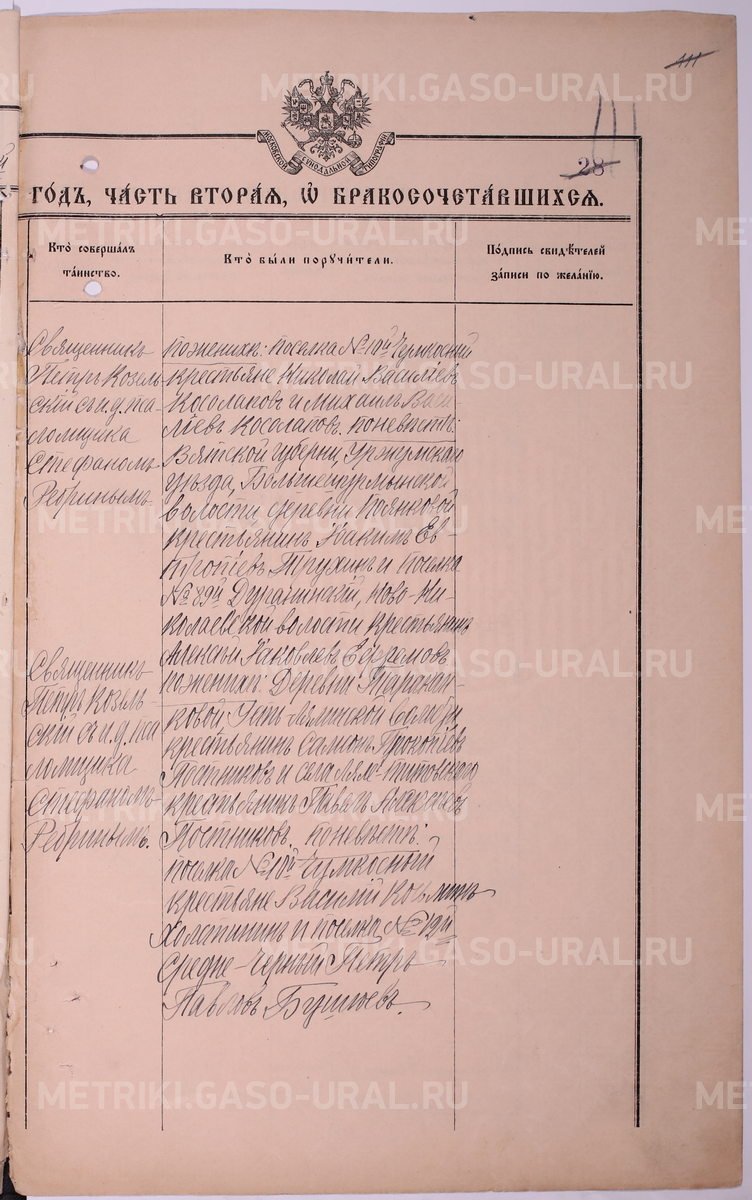 111
28
111
МОСКОВСКОЙ СѴНОДАЛЬНОЙ ТИПОГРАФІИ
ГО́ДЪ, ЧА́СТЬ ВТОРА́Я, Ѡ҆ БРАКОСОЧЕТА́ВШИХСЯ.
Кто̀ соверша́лъ
та́инство.
Кто̀ бы́ли поручи́тели.
По́дпись свидѣ́телей
за́писи по жела́нїю.
Священникъ
Петръ Козель
скій съ и. д. пса
ломщика
Стефаномъ
Ребринымъ.
По женихѣ: поселка № 10й Чумкосный
крестьяне Николай Васильевъ
Косолаповъ и Михаилъ Васи
льевъ Косолаповъ. По невѣстѣ:
Вятской губерни Уржумскаго
уѣзда, Большешурмынской
волости деревни Поянковой
крестьянинъ Іоакимъ Ев-
Трухинъ и поселка
№ 89й Ново-Ни-
колаевской волости крестьянинъ
Алексѣй Іаковлевъ Ефремовъ
Священникъ
Петръ Козель
скій съ и. д. пса
ломщика
Стефаномъ
Ребринымъ.
По женихѣ: Деревни Таракан-
ковой, Усть Лялинской волости,
крестьянинъ Самсонъ Прокопьевъ
Постниковъ и села Ляля-Титовскаго
крестьянинъ Павелъ Алексѣевъ
Постниковъ. По невѣстѣ:
поселка № 10й Чумкосный
крестьяне Василій Козьминъ
Холстининъ и поселка № 12й
Средне-Черный Петръ
Павловъ Бушуевъ.
METRIKI.GASO-URAL.RU